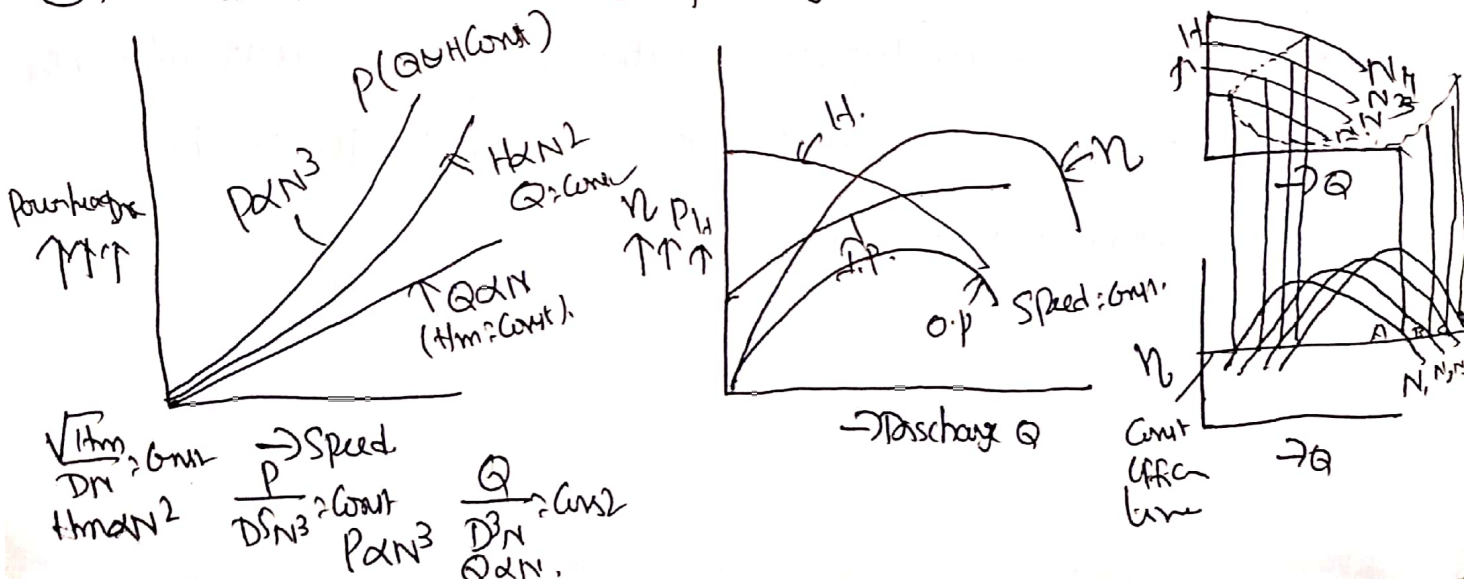 P(Q&HConst)
PαN³
HαN²
Q=Const
QαN
(Hm=Const).
↑↑↑
→Speed
√Hm/DN = Const
HmαN²
P/D⁵N³ = Const
PαN³
Q/D³N = Const
QαN.
H.
η
η P H
↑↑↑
I.P.
O.P
Speed=Const.
→Discharge Q
H
N₄
→Q
η
A B C
N₁ N₂
Const
Line
→Q